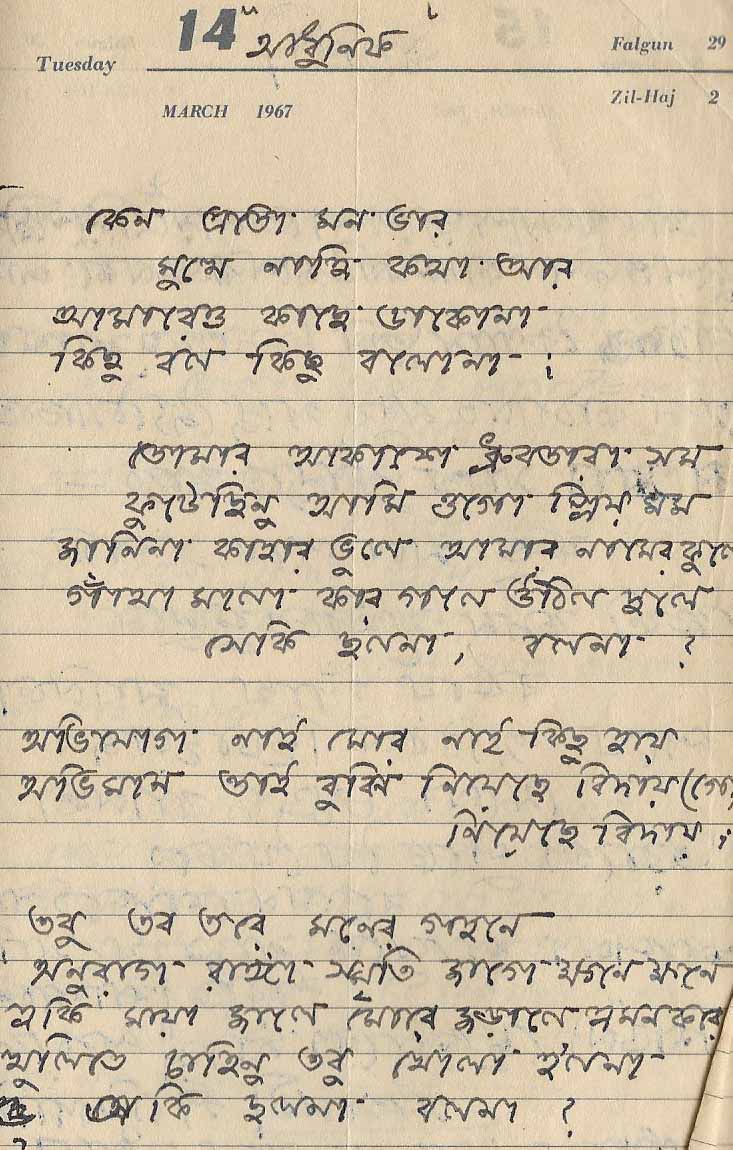 14 আধুনিক
Tuesday
Falgun 29
MARCH 1967
Zil-Haj 2
কেন এতো মন ভার
মুখে নাহি কথা আর
আমারেও কাছে ডাকোনা
কিছু বলে কিছু বলোনা।
তোমার আকাশে ধ্রুবতারা সম
ফুটেছিনু আমি ওগো প্রিয় মম
জানিনা কাহার ভুলে আমার নামের ফুলে
গাঁথা মালা কার গলে উঠিল দুলে
সেকি ছলনা, বলনা ?
অভিযোগ নাই মোর নাই কিছু হায়
অভিমান তাই বুঝি নিয়েছে বিদায় (গো
নিয়েছে বিদায়।
তবু তব তরে মনের গহনে
অনুরাগ রাঙ্গা স্মৃতি জাগে ক্ষনে ক্ষনে
একি মায়া জালে মোরে জড়ালে এমন করে
খুলিতে চাহিনু তবু খোলা হলনা
একি ছলনা বলনা ?